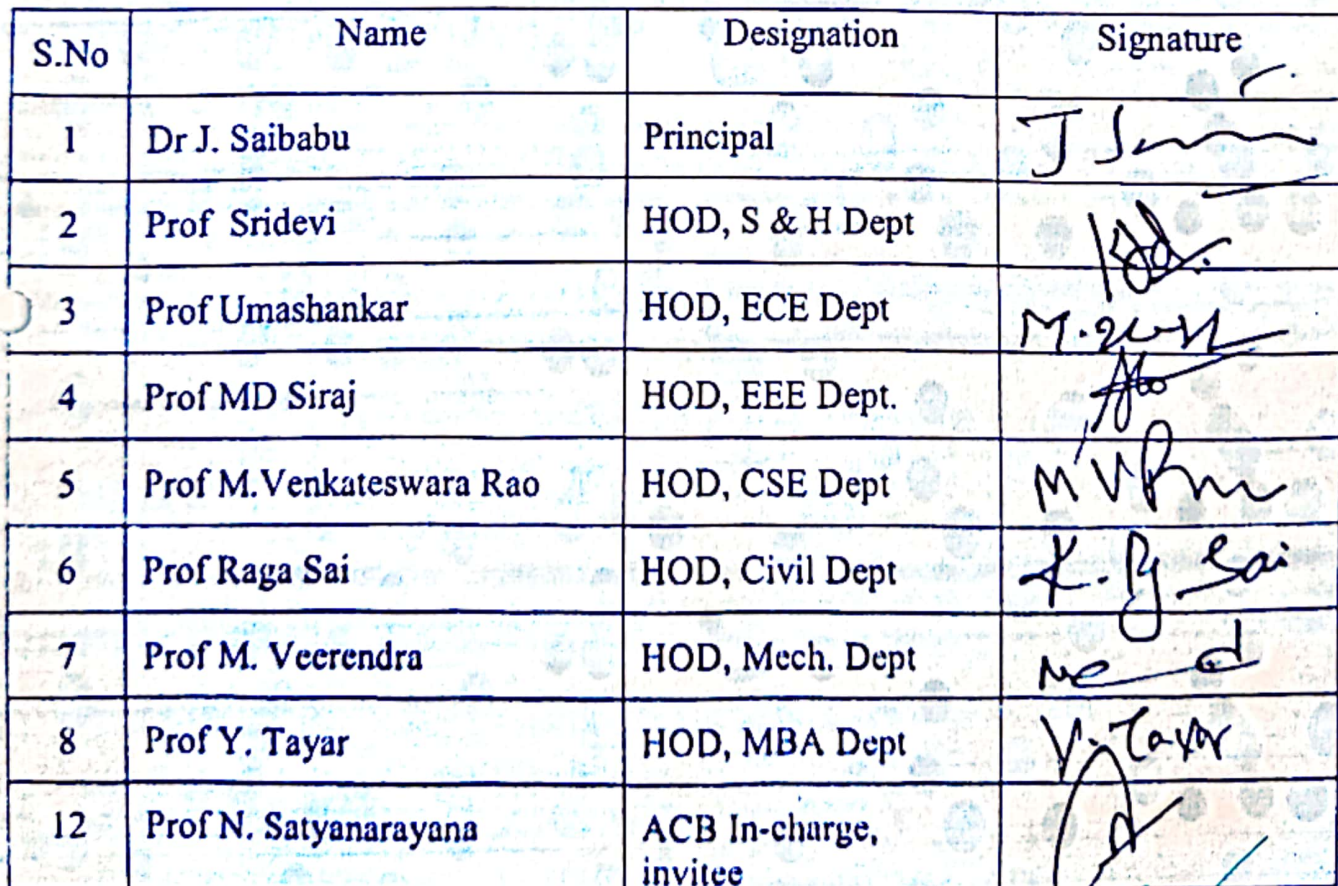 S.No Name Designation Signature
1 Dr J. Saibabu Principal
2 Prof Sridevi HOD, S & H Dept
3 Prof Umashankar HOD, ECE Dept
4 Prof MD Siraj HOD, EEE Dept.
5 Prof M.Venkateswara Rao HOD, CSE Dept
6 Prof Raga Sai HOD, Civil Dept K. Sai
7 Prof M. Veerendra HOD, Mech. Dept
8 Prof Y. Tayar HOD, MBA Dept Y. Tayar
12 Prof N. Satyanarayana ACB In-charge,
invitee